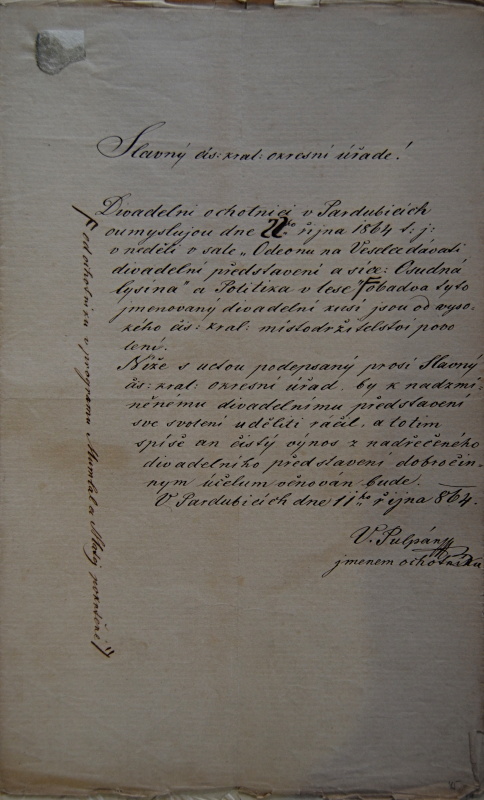 Slavný čís: kral: okresní úřade!
Dwadelni ochotnici v Pardubicich
oumyslujou dne 22ho října 1864 t: j:
v neděli v sale „Odeonu na Veselce dávati
divadelní představení a síce: Osudná
lysina" a Politika v lese" obadva tyto
jmenovaný divadelní kusi jsou od vyso-
kého čís: kral: místodržitelství povo
lení.
Níže s uctou podepsaný prosí Slavný
čís: kral: okresní úřad. by k nadzmí-
něnému divadelnímu představení
sve svolení uděliti ráčil, a to tim
spíše an čistý výnos z nadřečeného
divadelního představení dobročin-
nym účelum věnován bude.
V Pardubicích dne 11ho října 864.
V. Pulpány
jmenem ochotníků
programu